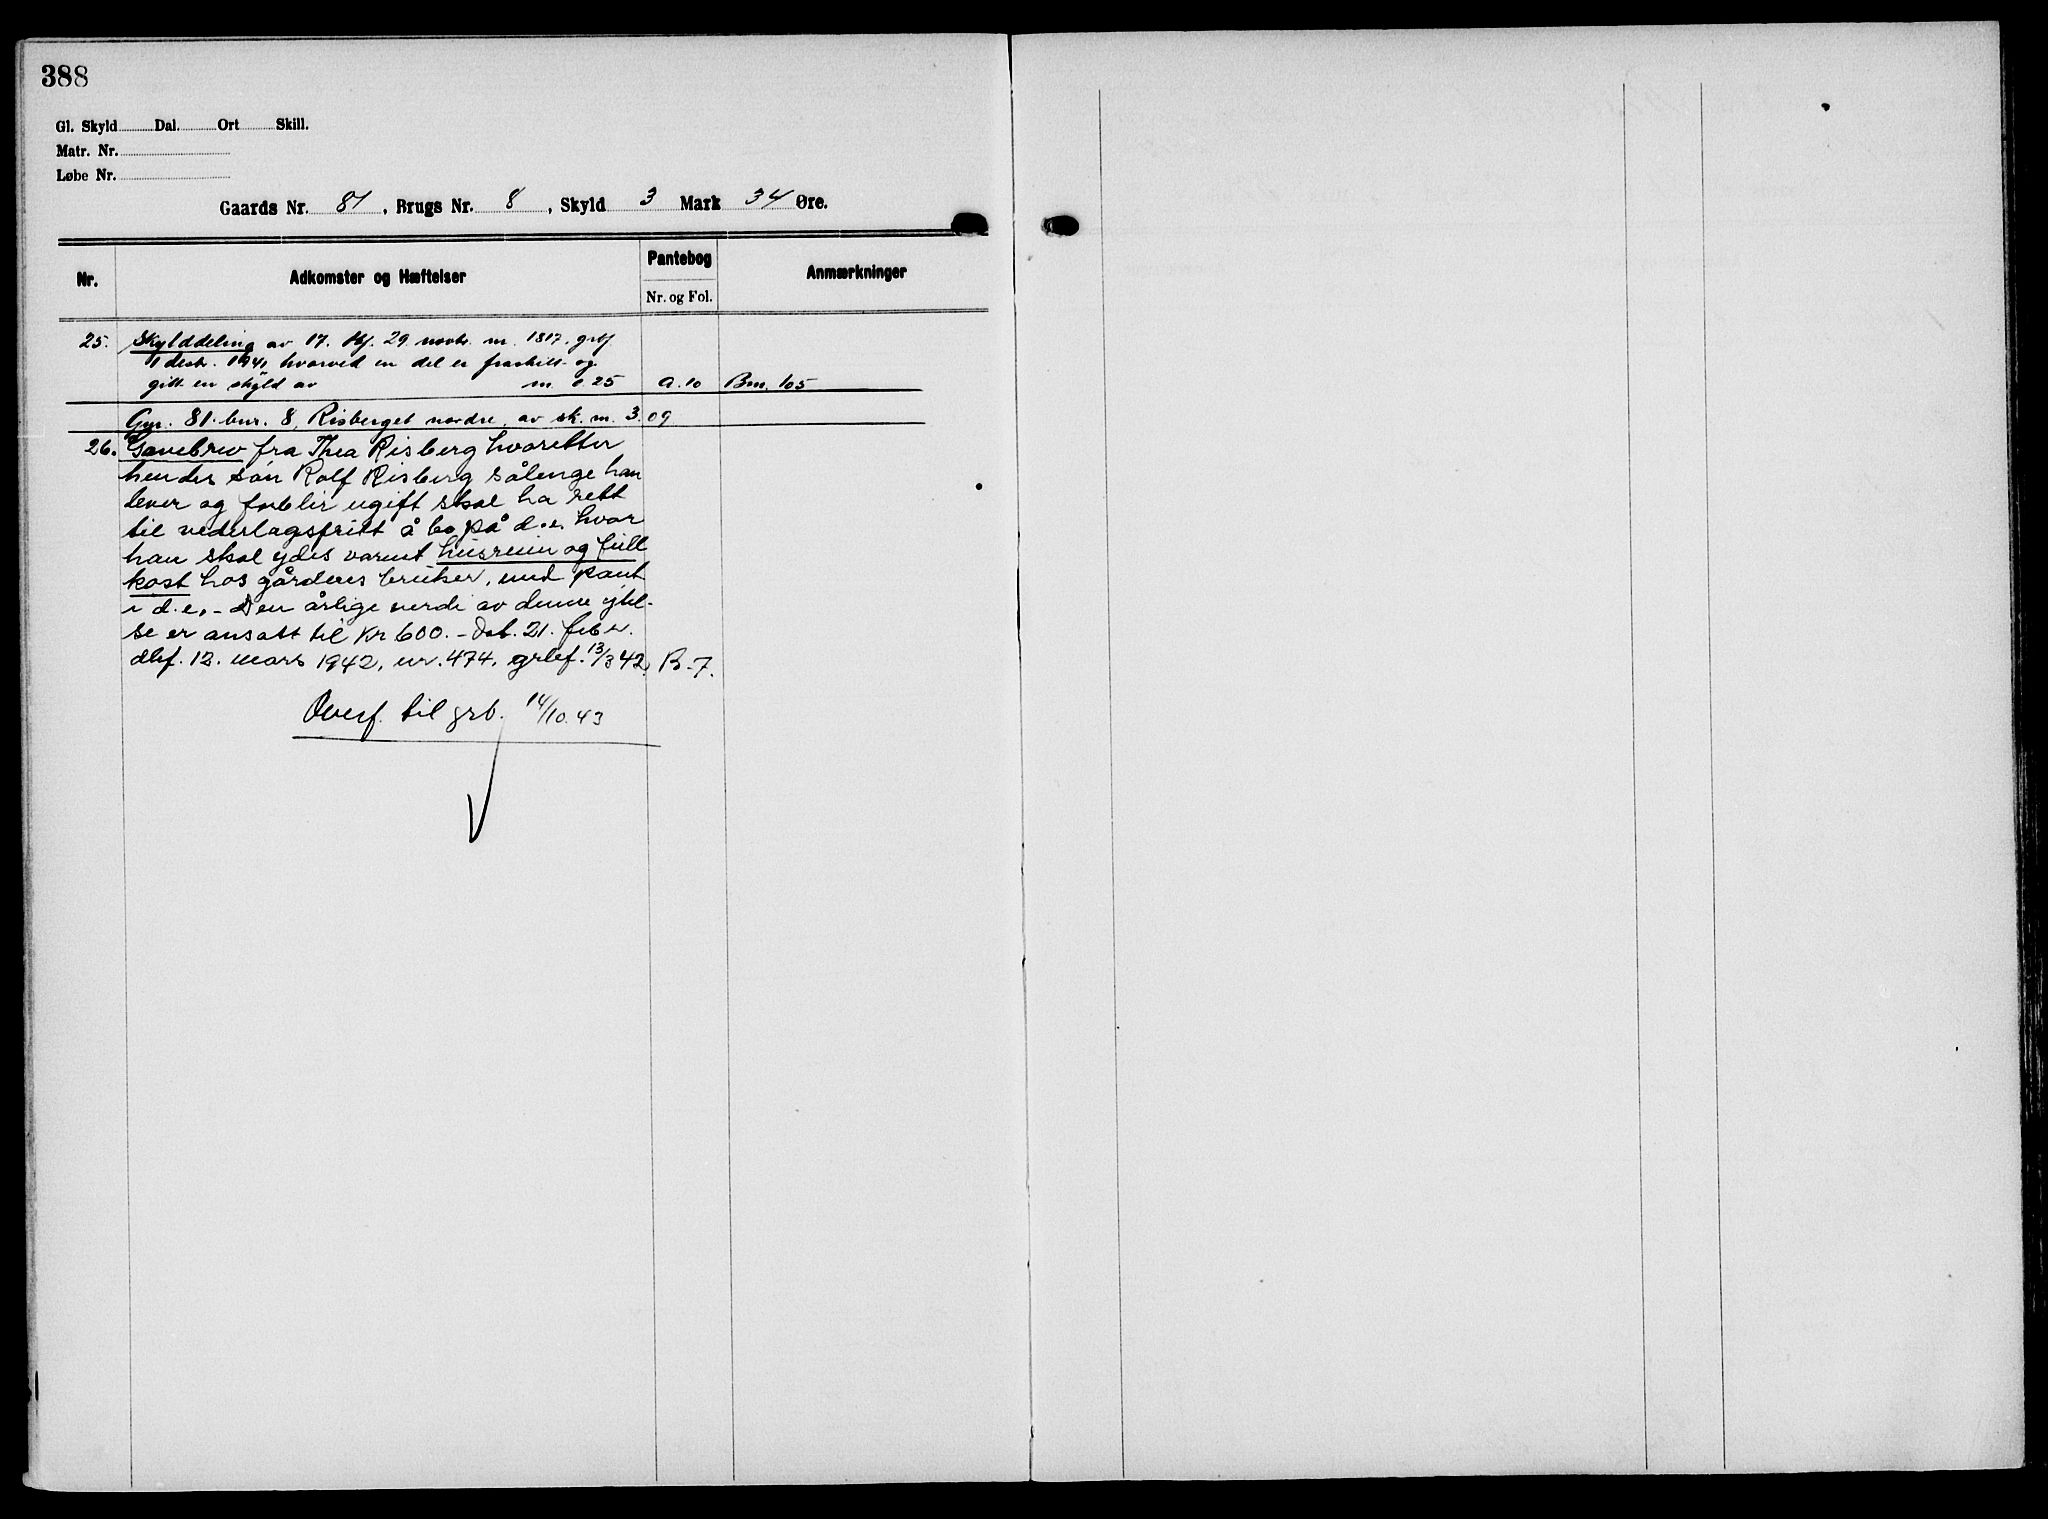 388
Gl. Skyld Dal. Ort Skill.
Matr. Nr.
Løbe Nr.
Gaards Nr. 81, Brugs Nr. 8, Skyld 3 Mark 34 Øre.
Nr. Adkomster og Hæftelser Pantebog Nr. og Fol. Anmærkninger
25. Skylddeling av 17. tlf. 29. novbr. nr. 1817, grlf
1 desbr. 1941, hvorved en del er fraskilt og
gitt en skyld av m. 0.25 A.10 Bnr. 105
Gnr. 81. bnr. 8, Risberget nordre, av sk. m. 3.09
26. Gavebrev fra Thea Risberg hvoretter
hendes søn Rolf Risberg sålenge han
lever og forblir ugift skal ha rett
til vederlagsfritt å bo på d.e. hvor
han skal ydes varmt husrum og full
kost hos gårdens bruker, med pant
i d.e. - Den årlige verdi av denne ytel-
se er ansatt til kr 600. - Dat. 21. febr.
dbf. 12. mars 1942, nr. 474, grbf. 13/3 42. B-7.
Overf. til grb. 14/10.43